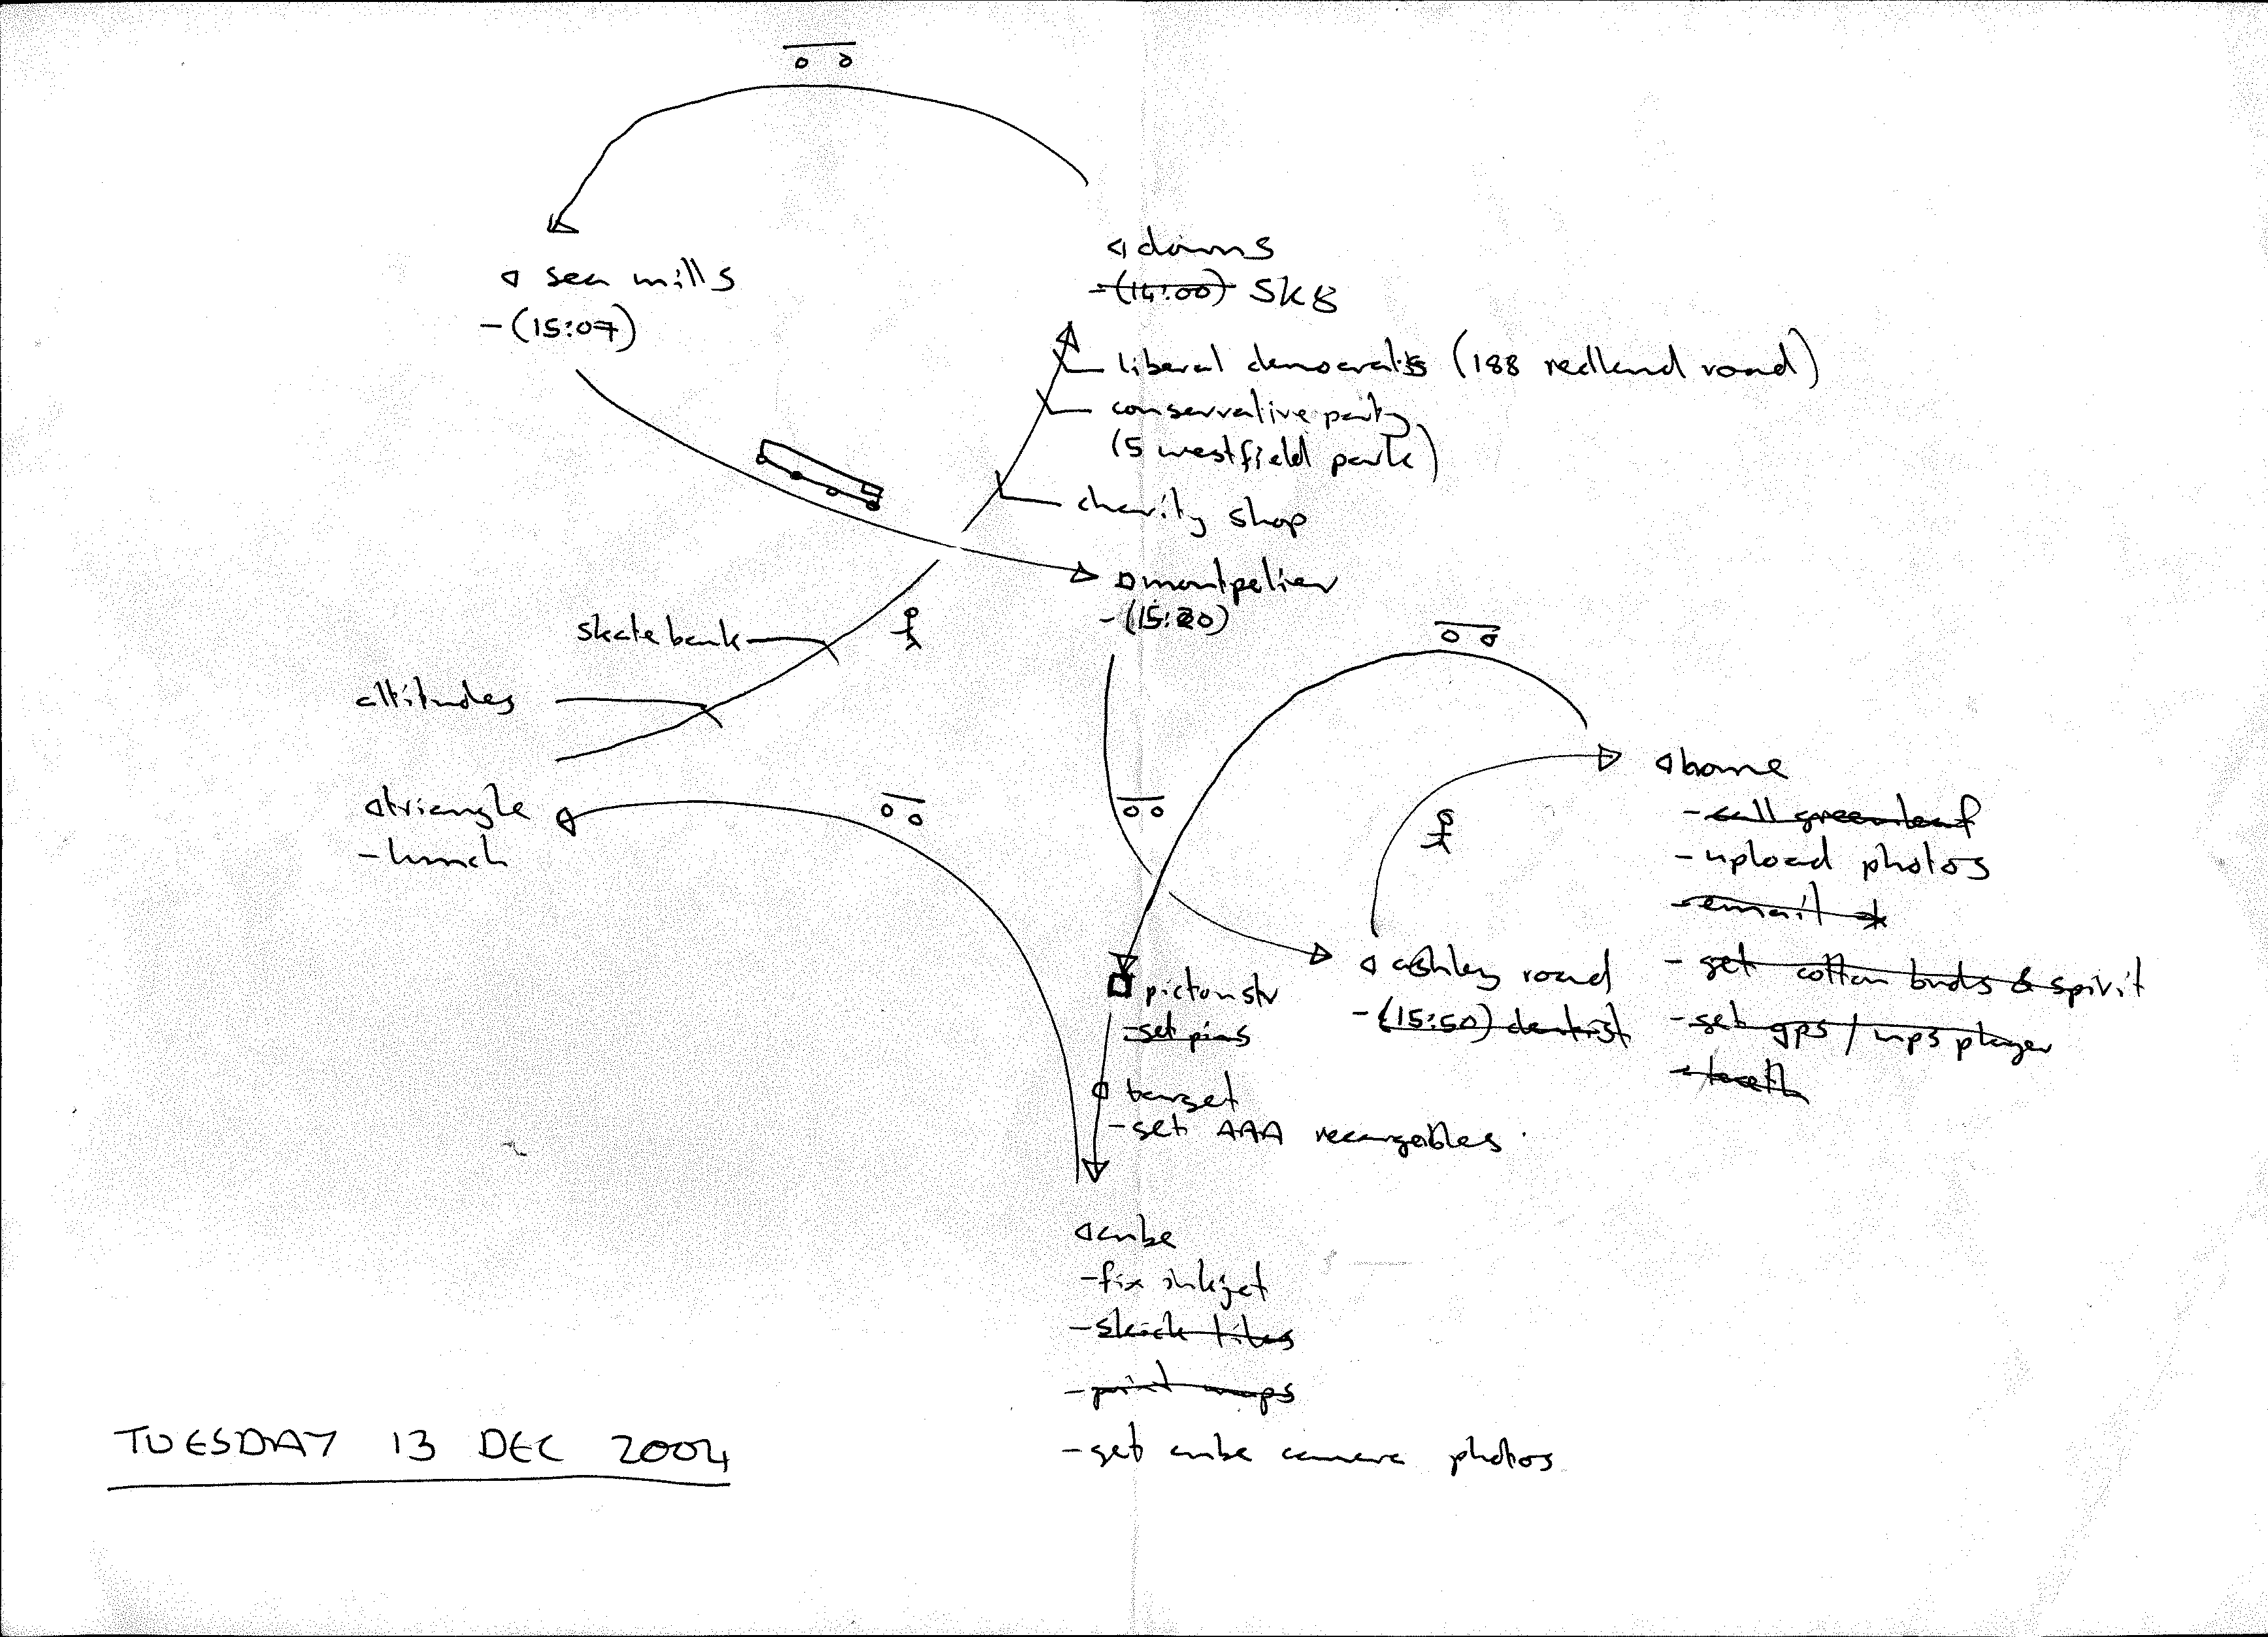 sea mills
-(15:07)
downs
-(14:00) SK8
liberal democrats (188 redland road)
conservative party
(5 westfield park)
charity shop
montpelier
-(15:20)
skate bank
attitudes
triangle
-lunch
home
-call greenleaf
-upload photos
-email *
-get cotton buds & spirit
-get gps / mp3 player
-teeth
ashley road
-(15:50) dentist
picton str
-get pins
target
-get AAA recargables
cube
-fix inkjet
-print maps
-get cube camera photos
TUESDAY 13 DEC 2004